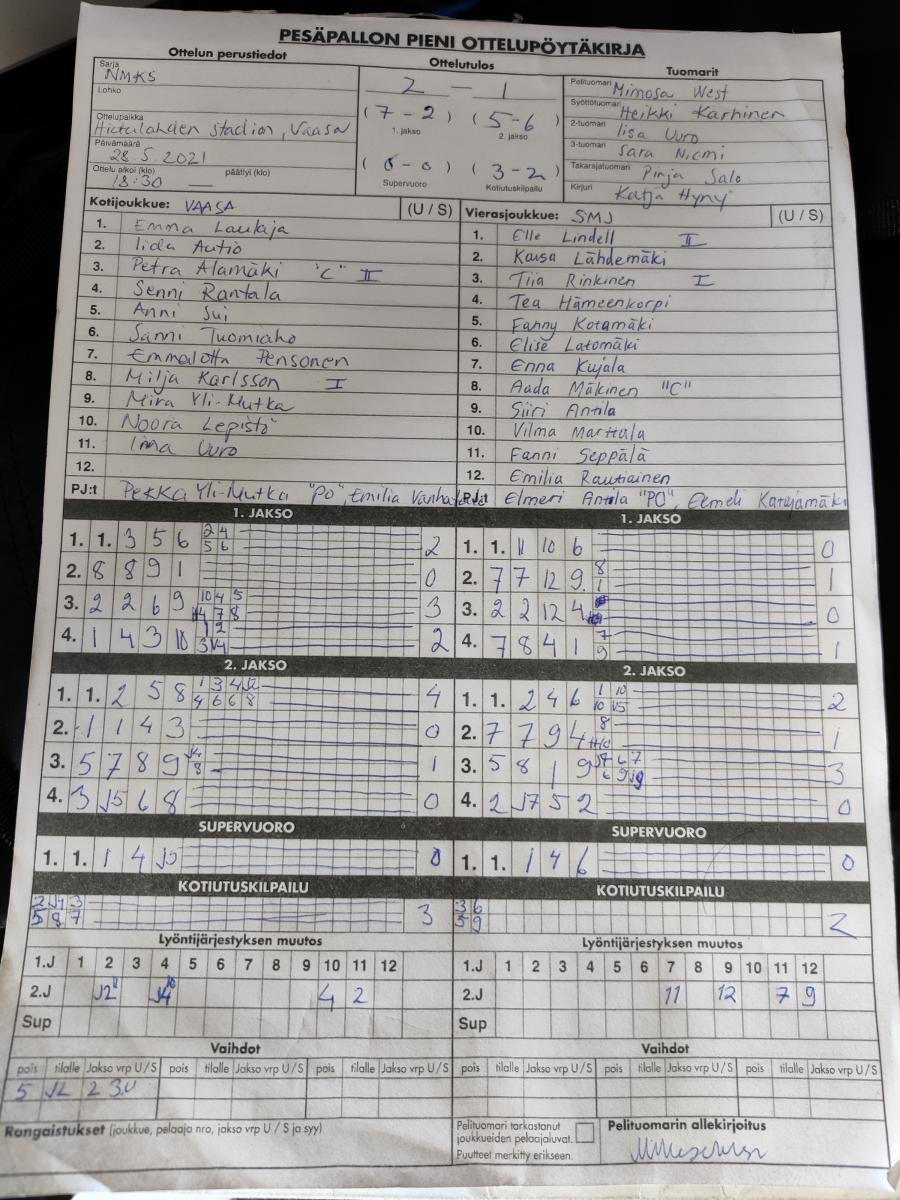 PESÄPALLON PIENI OTTELUPÖYTÄKIRJA
Ottelun perustiedot
Sarja NMKS
Lohko
Ottelupaikka
Hietalahden stadion, Vaasa
Päivämäärä 28.5.2021
Ottelu alkoi (klo) päättyi (klo)
18:30 —
Ottelutulos
2 - 1
(7-2) (5-6)
1. jakso 2. jakso
(0-0) (3-2)
Supervuoro Kotiutuskilpailu
Tuomarit
Pelituomari Mimosa West
Syöttötuomari Heikki Karhinen
2-tuomari Iisa Uuro
3-tuomari Sara Niemi
Takarajatuomari Pinja Salo
Kirjuri Katja Hyny
Kotijoukkue: VAASA (U / S)
1. Emma Laukaja
2. Iida Autio
3. Petra Alamäki "C" II
4. Senni Rantala
5. Anni Sui
6. Sanni Tuomiaho
7. Emmalotta Pensonen
8. Milja Karlsson I
9. Mira Yli-Mutka
10. Noora Lepistö
11. Iina Uuro
12.
PJ:t Pekka Yli-Mutka "PO", Emilia
Vierasjoukkue: SMJ (U / S)
1. Elle Lindell II
2. Kaisa Lähdemäki
3. Tiia Rinkinen I
4. Tea Hämeenkorpi
5. Fanny Kotamäki
6. Elise Latomäki
7. Enna Kujala
8. Aada Mäkinen "C"
9. Siiri Antila
10. Vilma Marttala
11. Fanni Seppälä
12. Emilia Rautiainen
PJ:t Elmeri Antila "PO", Eemeli Katajamäki
1. JAKSO
1. 1. 3 5 6 2 4 2
5 6
2. 8 8 9 1 0
3. 2 2 6 9 10 4 5 3
7 8
4. 1 4 3 10 1 2 2
3 J4
2. JAKSO
1. 1. 2 5 8 1 3 4 J2 4
4 6 6 8
2. 1 1 4 3 0
3. 5 7 8 9 J4 1
8
4. 3 J5 6 8 0
SUPERVUORO
1. 1. 1 4 0
KOTIUTUSKILPAILU
2 J4 3 3
5 8 7
1. JAKSO
1. 1. 11 10 6 0
2. 7 7 12 9 8 1
1
3. 2 2 12 4 0
4. 7 8 4 1 7 1
9
2. JAKSO
1. 1. 2 4 6 1 10 2
10 J5
2. 7 7 9 4 8 1
3. 5 8 1 9 6 7 3
6 9
4. 2 J7 5 2 0
SUPERVUORO
1. 1. 1 4 6 0
KOTIUTUSKILPAILU
3 6 2
5 9
Lyöntijärjestyksen muutos
1.J 1 2 3 4 5 6 7 8 9 10 11 12
2.J J2 J4 4 2
Sup
Lyöntijärjestyksen muutos
1.J 1 2 3 4 5 6 7 8 9 10 11 12
2.J 11 12 7 9
Sup
Vaihdot
pois tilalle Jakso vrp U / S pois tilalle Jakso vrp U / S pois tilalle Jakso vrp U / S
5 J2 2 3U
Vaihdot
pois tilalle Jakso vrp U / S pois tilalle Jakso vrp U / S pois tilalle Jakso vrp U / S
Rangaistukset (joukkue, pelaaja nro, jakso vrp U / S ja syy)
Pelituomari tarkastanut
joukkueiden pelaajaluvat.
Puutteet merkitty erikseen.
Pelituomarin allekirjoitus